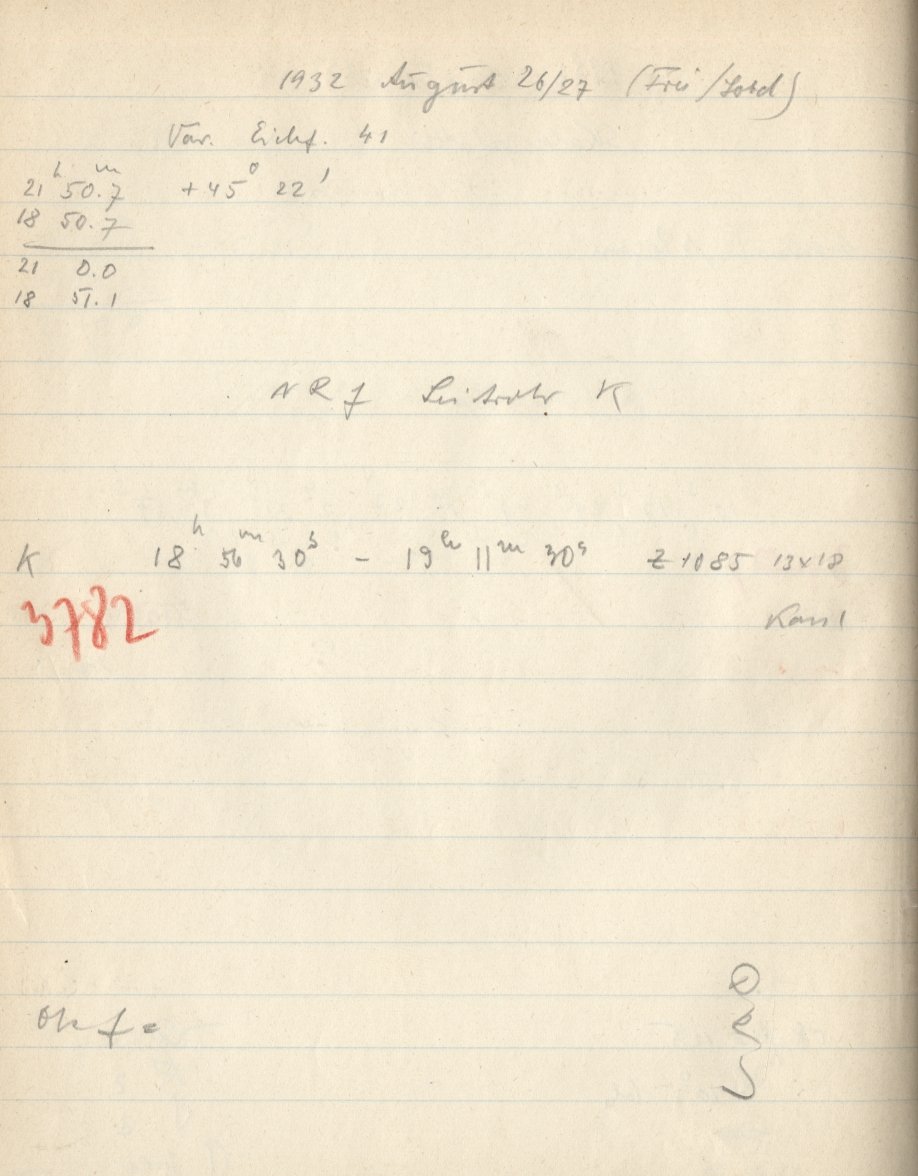 1932 August 26/27 (Frei/Sobd)
Var. Eichf. 41
21 h 50.7 m +45° 22'
18 50.7
21 0.0
18 51.1
N R f Leitrohr K
K 18h 56m 30s – 19h 11m 30s Z 1085 13x18
3782